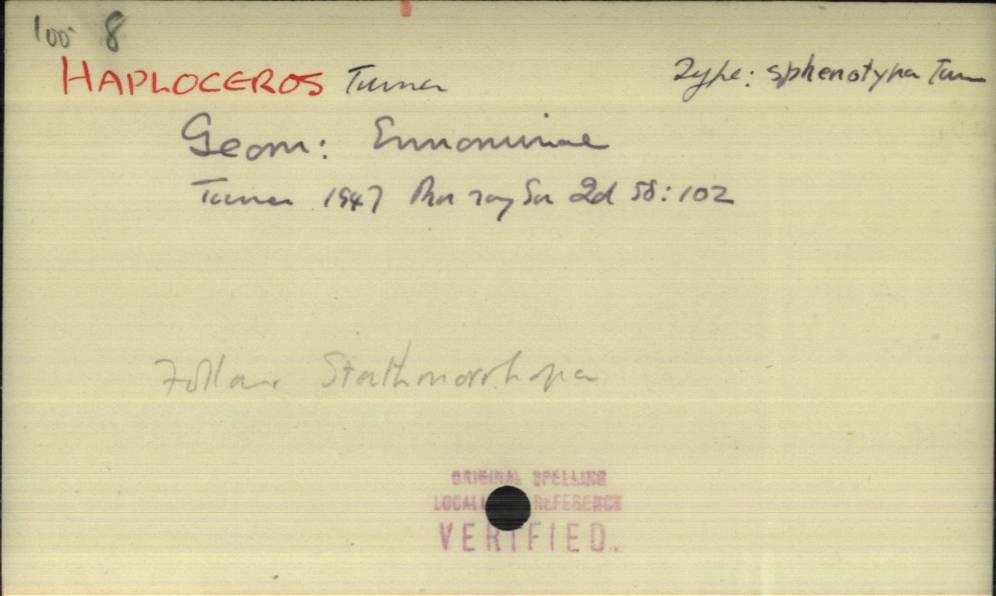 100 8
HAPLOCEROS Turner Type: sphenotypa Turn
Geom: Ennominae
Turner 1947 Proc roy Soc Qd 58:102
Follows Stathmorrhopa
ORIGINAL SPELLING
LOCALI REFERENCE
VERIFIED.